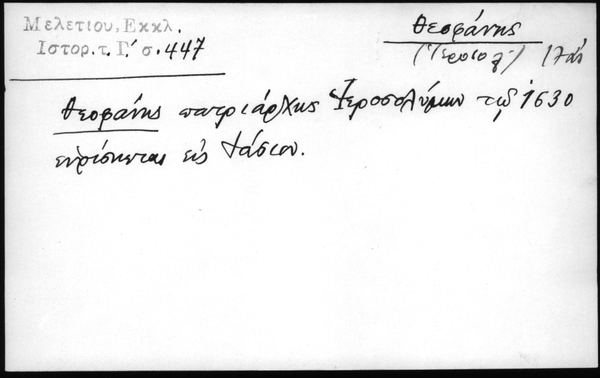 Μελετίου, Εκκλ.
Ιστορ. τ. Γ΄ σ. 447
Θεοφάνης
(Ἱεροσολ)
Θεοφάνης πατριάρχης Ἱεροσολύμων τῷ 1630
εὑρίσκεται εἰς Θάσιον.